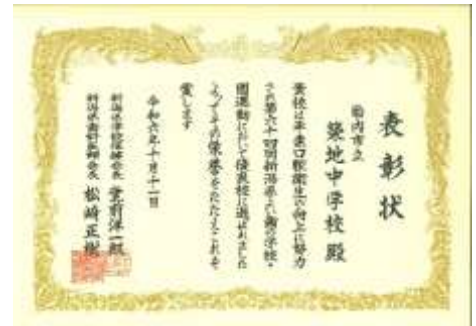 表彰状
胎内市立
築地中学校 殿
貴校は平素口腔衛生の向上に努力
され第六十四回新潟県よい歯の学校・
園運動において優良校に選ばれました
よってその栄誉をたたえこれを
賞します
令和六年十月十一日
新潟県学校保健会長
新潟県歯科医師会長 松﨑正樹